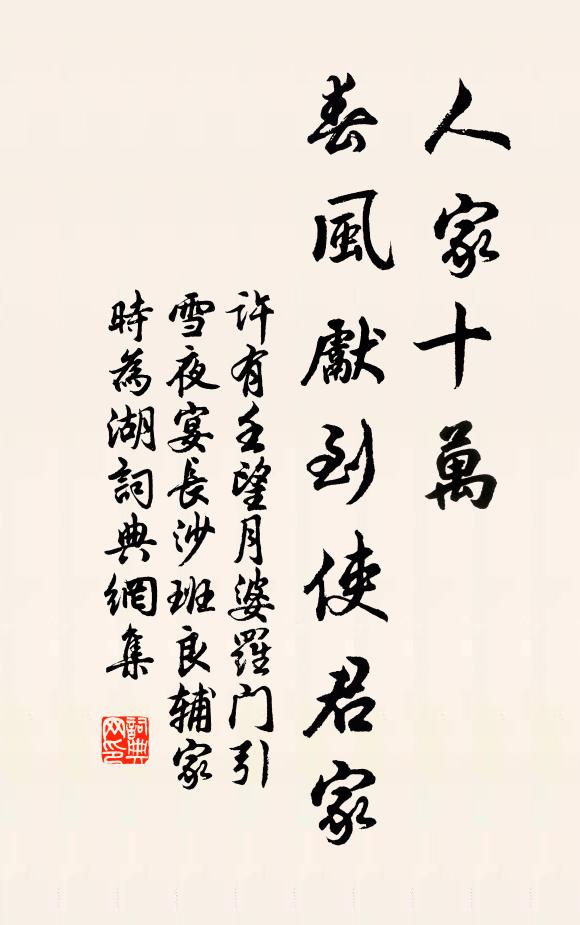 人家十萬
春風獻到使君家
許有壬望月婆羅门引
雪夜宴長沙班良辅家
時為湖詞典網集
詞典网印